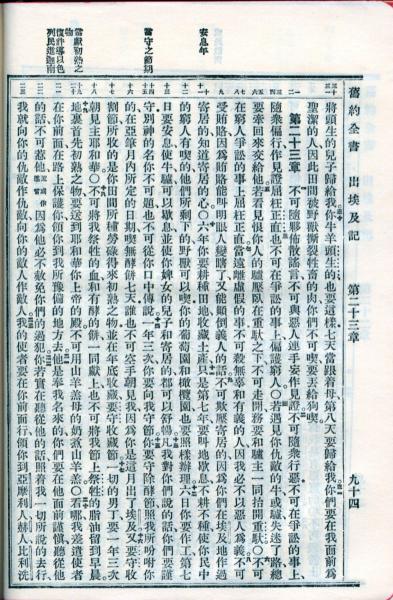 舊約全書 出埃及記 第二十三章 九十四
將頭生的兒子歸給我你牛羊頭生的也要這樣七天當跟着母第八天要歸給我你們要在我面前為
聖潔的人因此田間被野獸撕裂牲畜的肉你們不可喫要丟給狗喫
第二十三章 不可隨夥佈散謠言不可與惡人連手妄作見證不可隨衆行惡不可在爭訟的事上
隨衆偏行作見證屈枉正直也不可在爭訟的事上偏護窮人〇若遇見你仇敵的牛或驢失迷了路總
要牽回來交給他若看見恨你人的驢壓臥在重馱之下不可走開務要和驢主一同抬開重馱〇不可
在窮人爭訟的事上屈枉正直當遠離虛假的事不可殺無辜和有義的人因我必不以惡人為義不可
受賄賂因為賄賂能叫明眼人變瞎了又能顛倒義人的話不可欺壓寄居的因為你們在埃及地作過
寄居的知道寄居的心〇六年你要耕種田地收藏土產只是第七年要叫地歇息不耕不種使你民中
的窮人有喫的他們所剩下的野獸可以喫你的葡萄園和橄欖園也要照樣辦理六日你要作工第七
日要安息使牛驢可以歇息並使你婢女的兒子和寄居的都可以舒暢凡我對你們說的話你們要謹
守別神的名你不可題也不可從你口中傳說一年三次你要向我守節你要守除酵節照我所吩咐你
的在亞筆月內所定的日期喫無酵餅七天誰也不可空手朝見我因為你是這月出了埃及又要守收
割節所收的是你田間所種勞碌得來初熟之物並在年底收藏要守收藏節一切的男丁要一年三次
朝見主耶和華〇不可將我祭牲的血和有酵的餅一同獻上也不可將我節上祭牲的脂油留到早晨
地裏首先初熟之物要送到耶和華你上帝的殿不可用山羊羔母的奶煮山羊羔〇看哪我差遣使者
在你前面在路上保護你領你到我所預備的地方去他是奉我名來的你們要在他面前謹慎聽從他
的話不可惹他因為他必不赦免你們的過犯你若實在聽從他的話照着我一切所說的去行
我就向你的仇敵作仇敵向你的敵人作敵人我的使者要在你前面行領你到亞摩利人赫人比利洗
安息年
當守之節期
當獻初熟之物
復許導以色列民進迦南